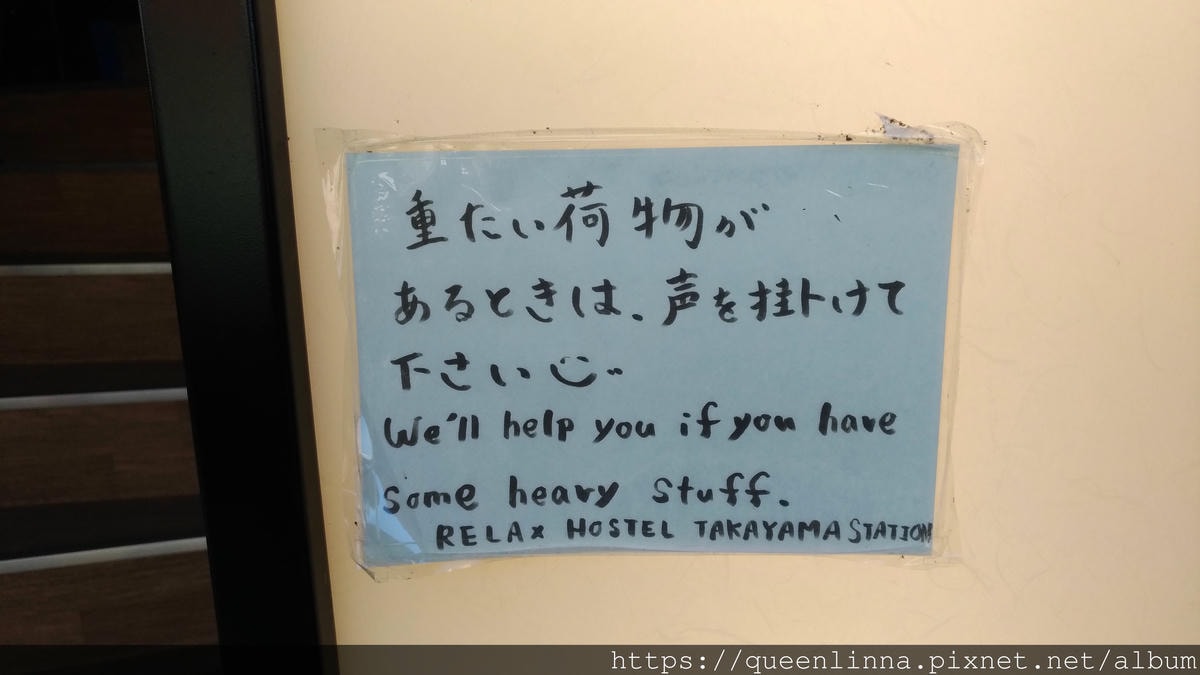 重たい荷物が
あるときは、声を掛けて
下さい
We'll help you if you have
some heavy stuff.
RELAX HOSTEL TAKAYAMA STATION
https://queenlinna.pixnet.net/album